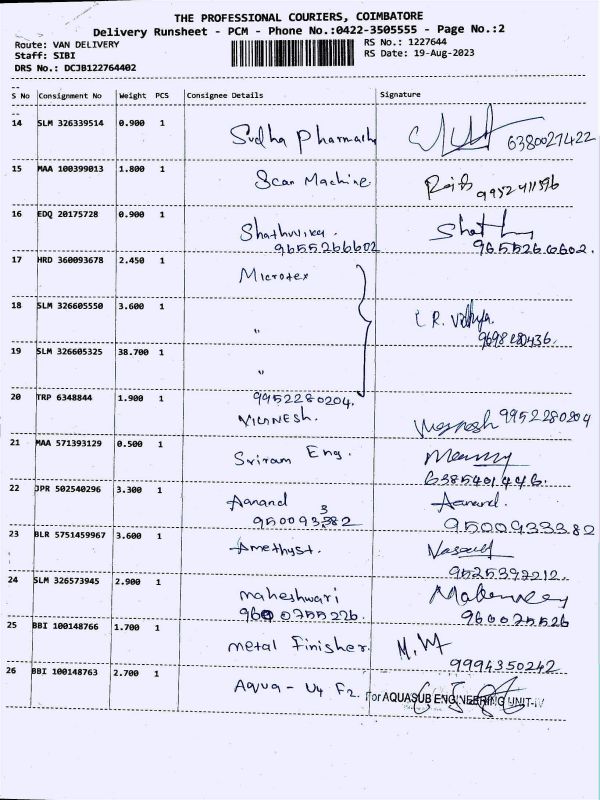 THE PROFESSIONAL COURIERS, COIMBATORE
Delivery Runsheet - PCM - Phone No.:0422-3505555 - Page No.:2
Route: VAN DELIVERY
RS No.: 1227644
Staff: SIBI
RS Date: 19-Aug-2023
DRS No.: DCJB122764402
S No Consignment No Weight PCS Consignee Details Signature
14 SLM 326339514 0.900 1
Sudha Pharmacy 6380027422
15 MAA 100399013 1.800 1
Scan Machine 9952411596
16 EDQ 20175728 0.900 1
Shathuvika.
9655266602 9655266602.
17 HRD 360093678 2.450 1
Microtex
18 SLM 326605550 3.600 1
" R. Vidhya.
9698280436.
19 SLM 326605325 38.700 1
"
20 TRP 6348844 1.900 1
9952280204.
VIGNESH. 9952280204
21 MAA 571393129 0.500 1
Sriram Eng.
6385401446.
22 JPR 502540296 3.300 1
Aanand Aanand.
9500933382 9500933382
23 BLR 5751459967 3.600 1
Amethyst.
9525392212.
24 SLM 326573945 2.900 1
maheshwari
9600755226. 960075526
25 BBI 100148766 1.700 1
metal Finisher.
9994350242
26 BBI 100148763 2.700 1
Aqua - U4 F2. For AQUASUB ENGINEERING UNIT-IV